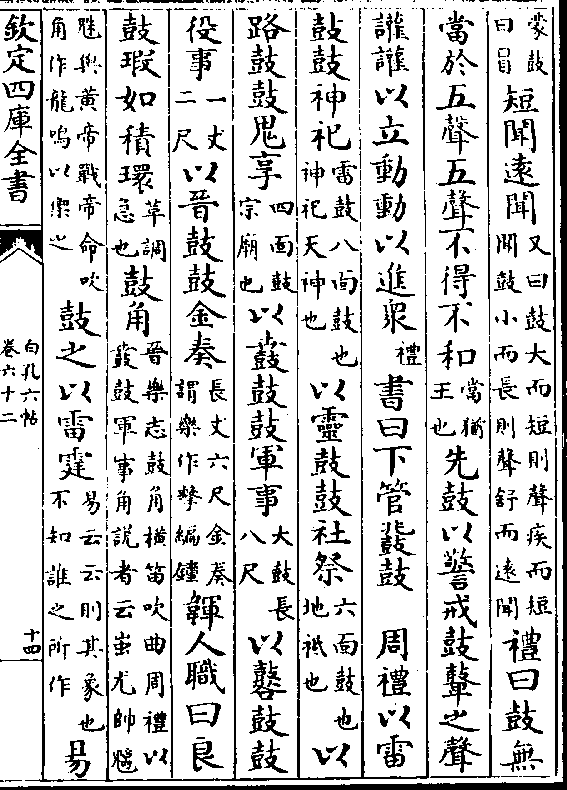 蒙鼓曰冒短聞逺聞又曰鼓大而短則聲疾而短聞鼓小而長則聲舒而逺聞禮曰鼓無
當於五聲五聲不得不和當猶主也先鼓以警戒鼓鼙之聲
讙讙以立動動以進衆禮書曰下管鼗鼓 周禮以雷
鼓鼓神祀雷鼓八面鼓也神祀天神也以靈鼓鼓社祭六面鼓也地祗也以
路鼓鼓鬼享四面鼓宗廟也以鼖鼓鼓軍事大鼓長八尺以鼛鼓鼓
役事一丈二尺以晉鼓鼓金奏長丈六尺金奏謂樂作擊編鐘韗人職曰良
鼓瑕如積環革調急也鼓角晉樂志鼓角橫笛吹曲周禮以鼖鼓軍事角說者云蚩尤帥魑
魅與黄帝戰帝命吹角作龍鳴以禦之鼓之以雷霆易云云則其象也不知誰之所作易
欽定四庫全書
白孔六帖
卷六十二
十四